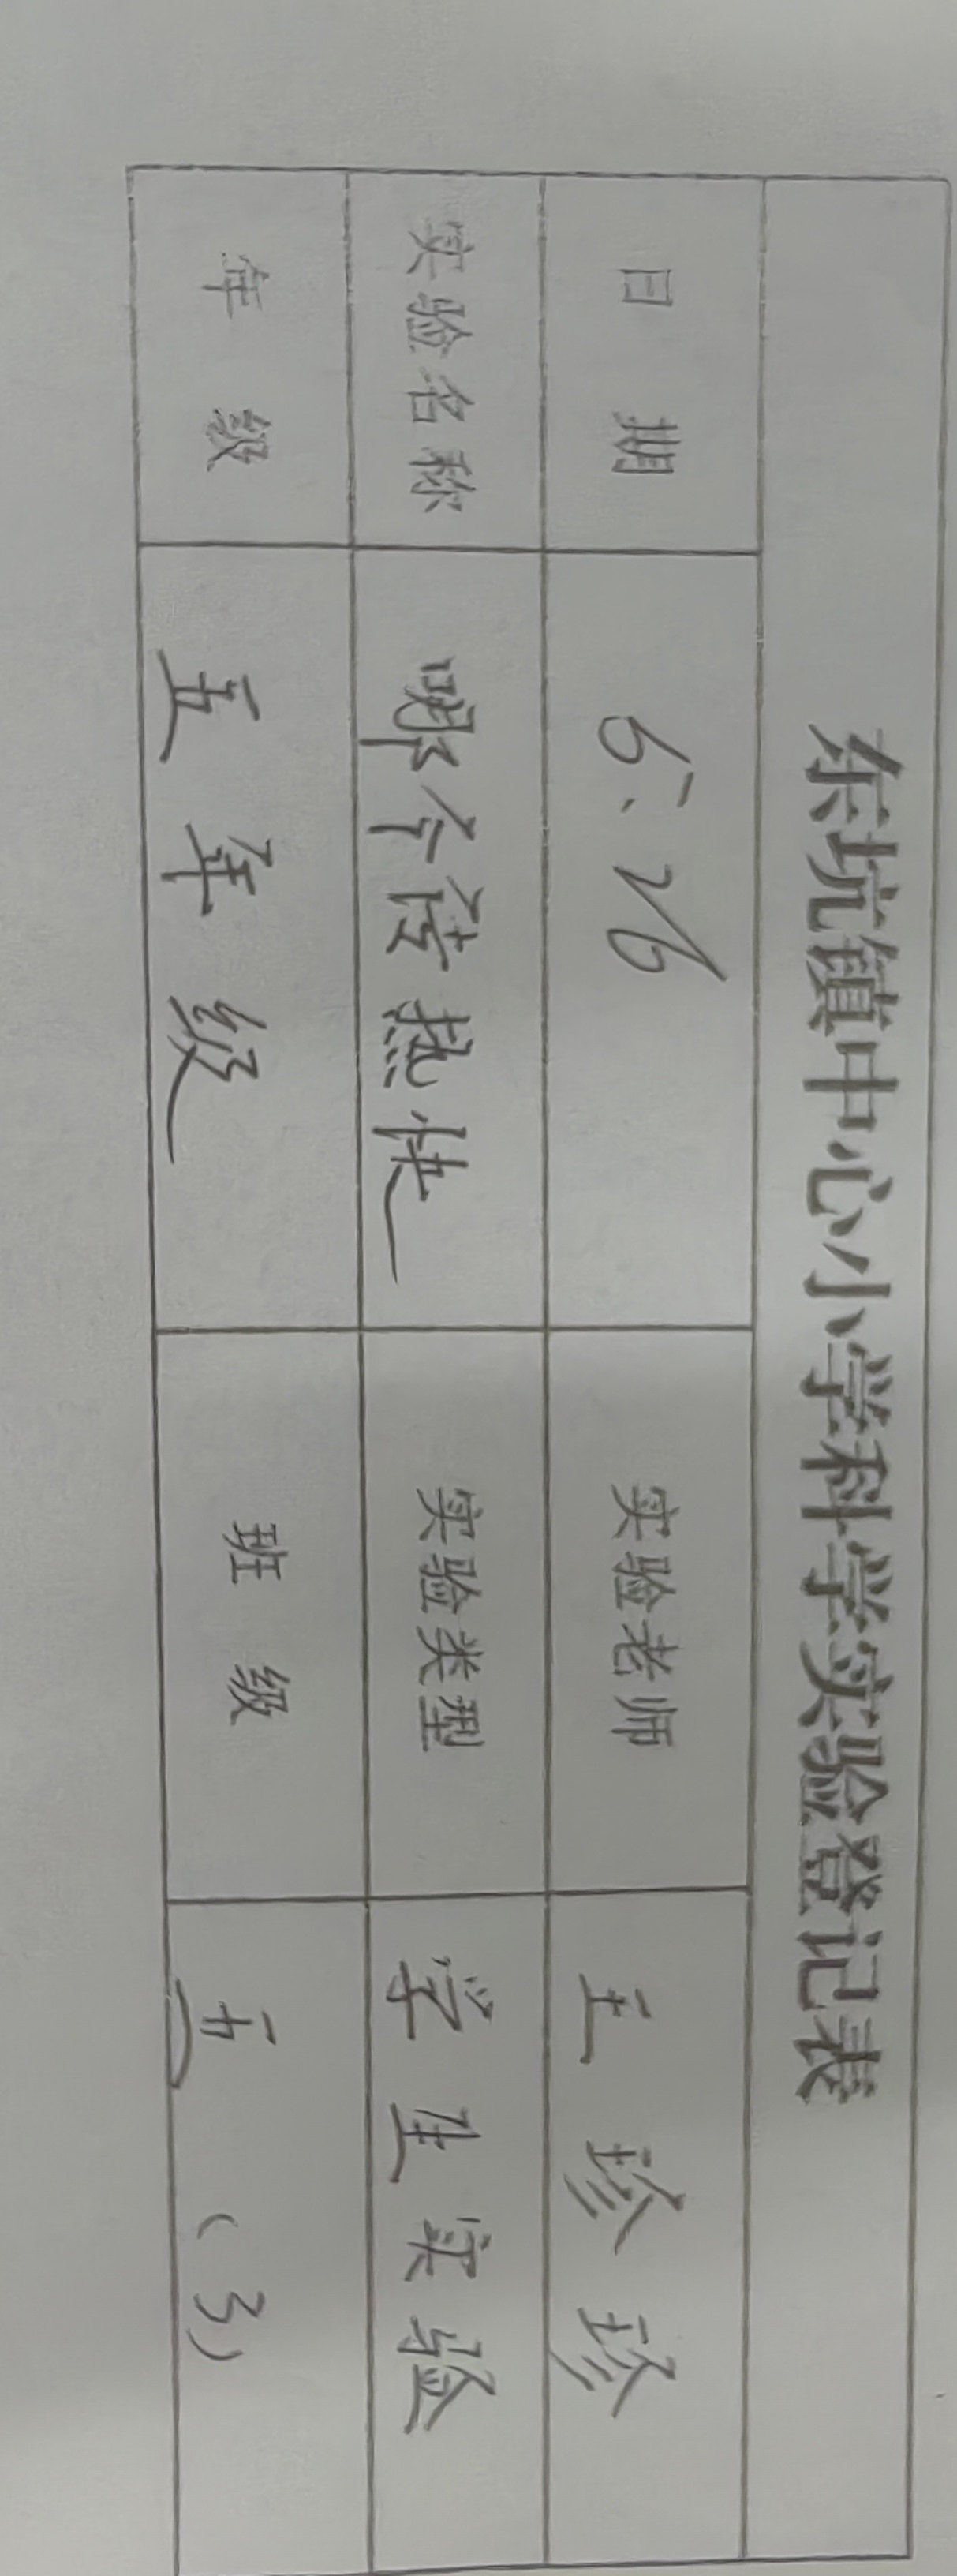 东坑镇中心小学科学实验登记表
日 期 5.26 实验老师 王珍珍
实验名称 哪个传热快 实验类型 学生实验
年 级 五年级 班 级 五(3)